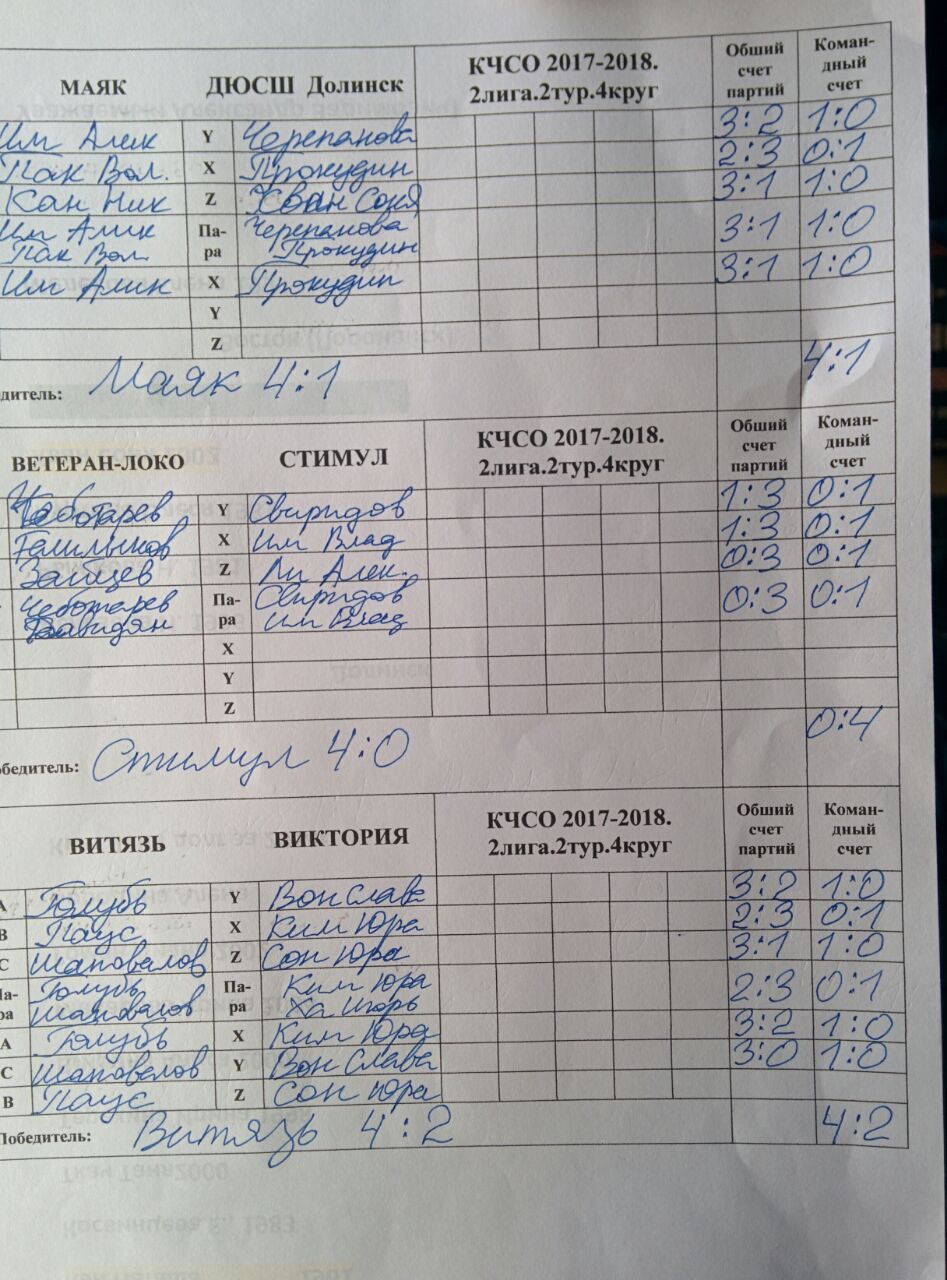 МАЯК ДЮСШ Долинск КЧСО 2017-2018. 2лига.2тур.4круг Обший счет партий Коман-дный счет
Им Алик Y Черепанова 3:2 1:0
Пак Вол. X Прокудин 2:3 0:1
Кан Ник Z Хван Соня 3:1 1:0
Им Алик Па- Черепанова 3:1 1:0
Пак Вол. ра Прокудин
Им Алик X Прокудин 3:1 1:0
Y
Z
дитель: Маяк 4:1 4:1
ВЕТЕРАН-ЛОКО СТИМУЛ КЧСО 2017-2018. 2лига.2тур.4круг Обший счет партий Коман-дный счет
Чеботарев Y Свиридов 1:3 0:1
X Им Влад 1:3 0:1
Зайцев Z Ли Алек. 0:3 0:1
Чеботарев Па- Свиридов 0:3 0:1
Давидян ра Им Влад
X
Y
Z
0:4
обедитель: Стимул 4:0
ВИТЯЗЬ ВИКТОРИЯ КЧСО 2017-2018. 2лига.2тур.4круг Обший счет партий Коман-дный счет
А Голубь Y Вон Слава 3:2 1:0
В Паус X Ким Юра 2:3 0:1
С Шаповалов Z Сон Юра 3:1 1:0
Па- Голубь Па- Ким Юра 2:3 0:1
ра Шаповалов ра Ха Игорь
А Голубь X Ким Юра 3:2 1:0
С Шаповалов Y Вон Слава 3:0 1:0
В Паус Z Сон Юра
Победитель: Витязь 4:2 4:2